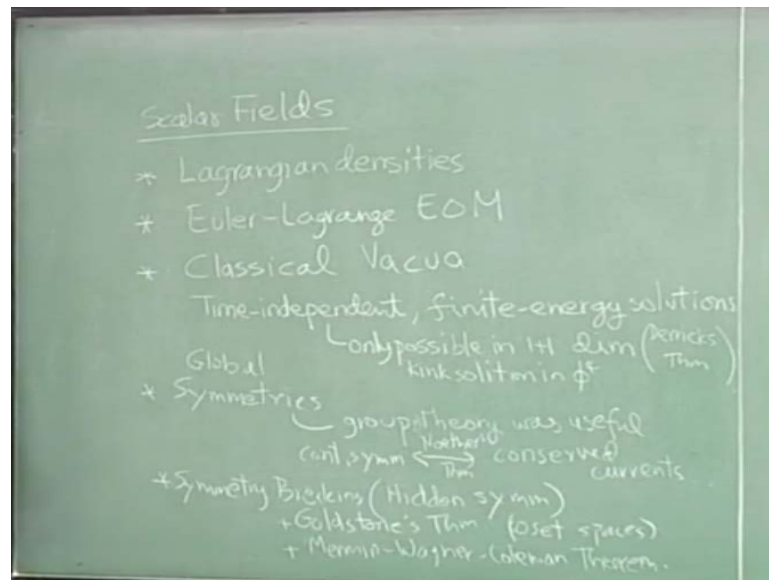 Scalar Fields
* Lagrangian densities
* Euler-Lagrange EOM
* Classical Vacua
Time-independent, finite-energy solutions
only possible in 1+1 dim (Derricks Thm)
kink soliton in φ⁴
Global
* Symmetries
group theory was useful
cont. symm ⟷ Noether's Thm conserved currents
* Symmetry Breaking (Hidden symm)
+ Goldstone's Thm (coset spaces)
+ Mermin-Wagner-Coleman Theorem.